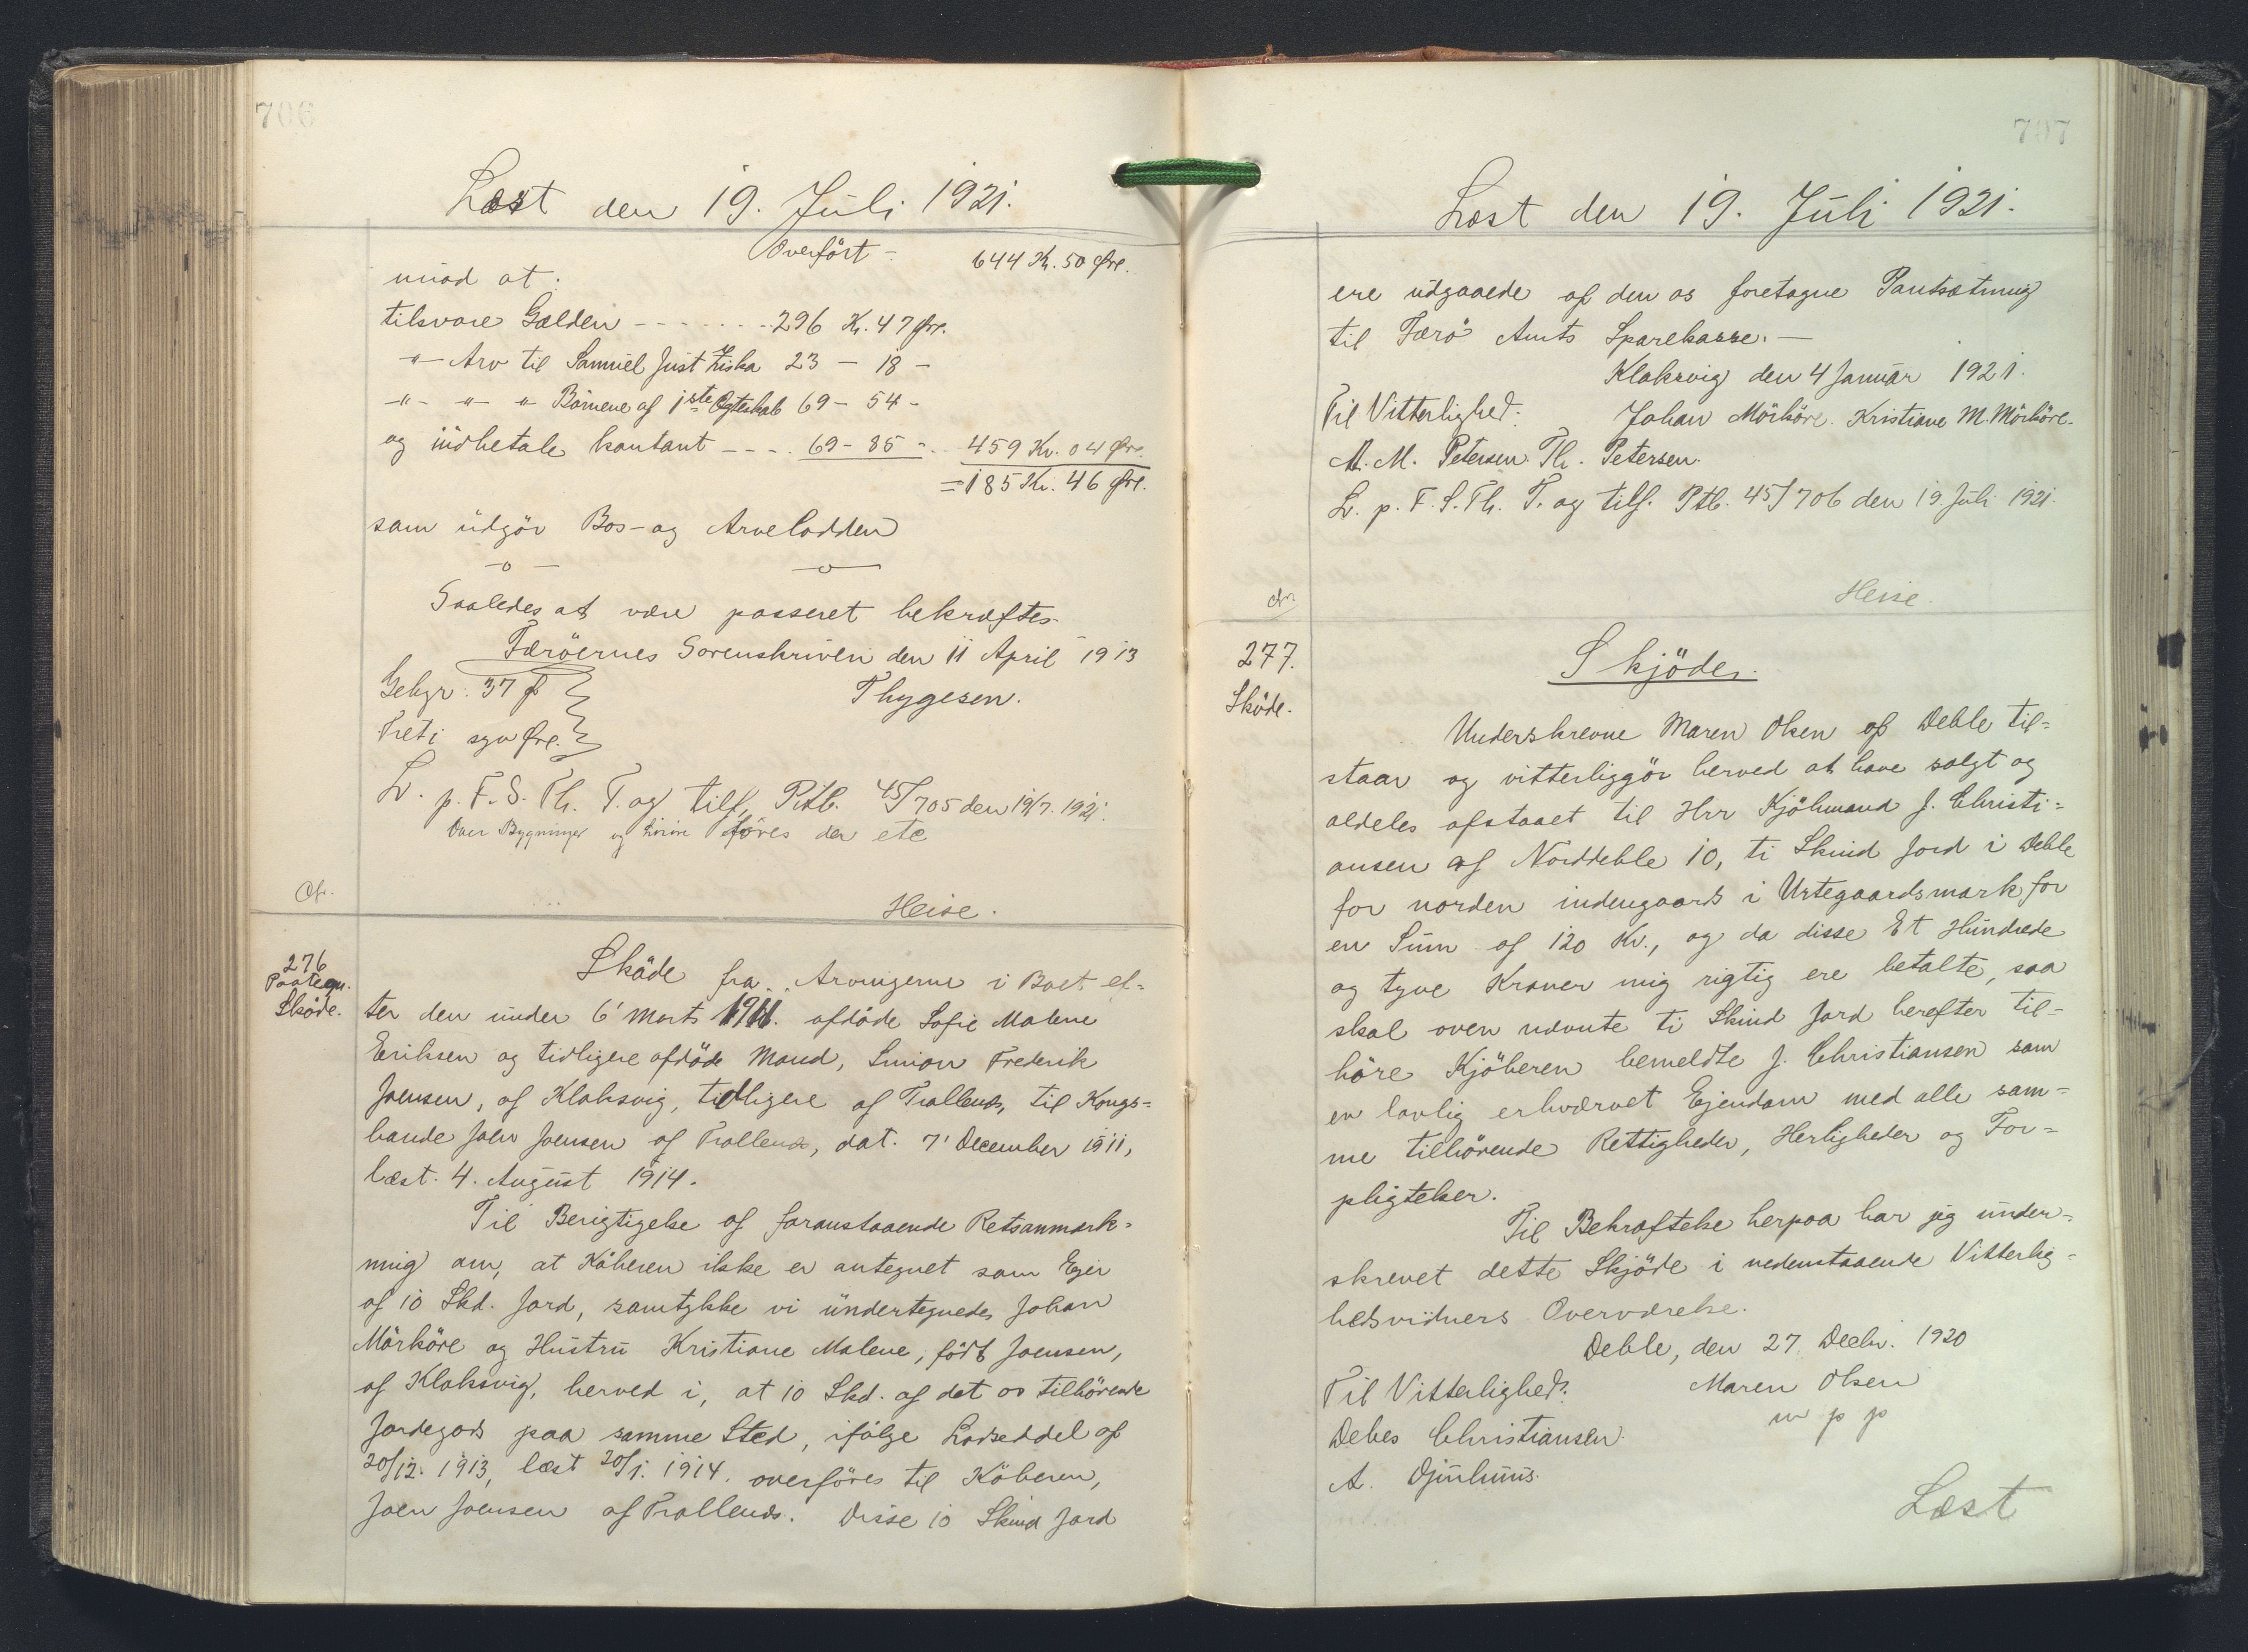 706
Læst den 19. Juli 1921.
Overfört - 644 Kr. 50 Øre.
mod at:
tilsvare Gælden - - - - - - - 296 Kr. 47 Øre.
-"- Arv til Samuel Just Ziska 23 - 18 -
-"- -"- " Börnene af 1ste Ægteskab 69 - 54 -
og indbetale kontant - - - . 69 - 85 - . 459 Kr. 04 Øre.
= 185 Kr. 46 Øre.
som udgör Bos- og Arvelodden
-o- -o-
Saaledes at være passeret bekræftes.
Færöernes Sorenskriveri den 11 April 1913
Gebyr: 37 Ø
Thygesen.
Treti syv Øre.
L. p. F. S. Th. T. og tilf. Ptb. 45/705 den 19/7. 1921.
Over Bygninger og föres der etc
Heise.
276
Paategn.
Sköde.
Sköde fra Arvingerne i Boet ef=
ter den under 6' Marts 1911. afdöde Sofie Malene
Eriksen og tidligere afdöde Mand, Simon Frederik
Joensen, af Klaksvig, tidligere af Trallenæs, til Kongs=
bonde Joen Joensen af Trallenæs, dat. 7' December 1911,
læst. 4. August 1914.
Til Berigtigelse af foranstaaende Retsanmærk=
ning om, at Köberen ikke er antegnet som Ejer
af 10 Skd. Jord, samtykke vi undertegnede, Johan
Mörköre og Hustru Kristiane Malene, födt Joensen,
af Klaksvig, herved i, at 10 Skd. af det os tilhörende
Jordegods paa samme Sted, ifölge Lodseddel af
20/12. 1913, læst 20/1. 1914. overföres til Köberen,
Joen Joensen af Trallenæs. Disse 10 Skind Jord
707
Læst den 19. Juli 1921.
ere udgaaede af den os foretagne Pantsætning
til Færö Amts Sparekasse. -
Klaksvig den 4 Januar 1921.
Til Vitterlighed: Johan Mörköre. Kristiane M. Mörköre.
M. M. Petersen. Th. Petersen.
L. p. F. S. Th. T. og tilf. Ptb. 45/706 den 19 Juli 1921.
Heise.
277.
Sköde.
Skjöde.
Underskrevne Maren Olsen af Deble til=
staar og vitterliggör herved at have solgt og
aldeles afstaaet til Hrr Kjöbmand J. Christi=
ansen af Norddeble 10, ti Skind Jord i Deble
for norden indengaards i Urtegaardsmark for
en Sum af 120 Kr., og da disse Et Hundrede
og tyve Kroner mig rigtig ere betalte, saa
skal oven nævnte ti Skind Jord herefter til=
höre Kjöberen bemeldte J. Christiansen som
en lovlig erhvervet Ejendom med alle sam=
me tilhörende Rettigheder, Herligheder og For=
pligtelser.
Til Bekræftelse herpaa har jeg under=
skrevet dette Skjöde i nedenstaaende Vitterlig=
hedsvidners Overværelse.
Deble, den 27. Decbr. 1920
Til Vitterlighed: Maren Olsen
m p p
Debes Christiansen.
A. Djurhuus.
Læst